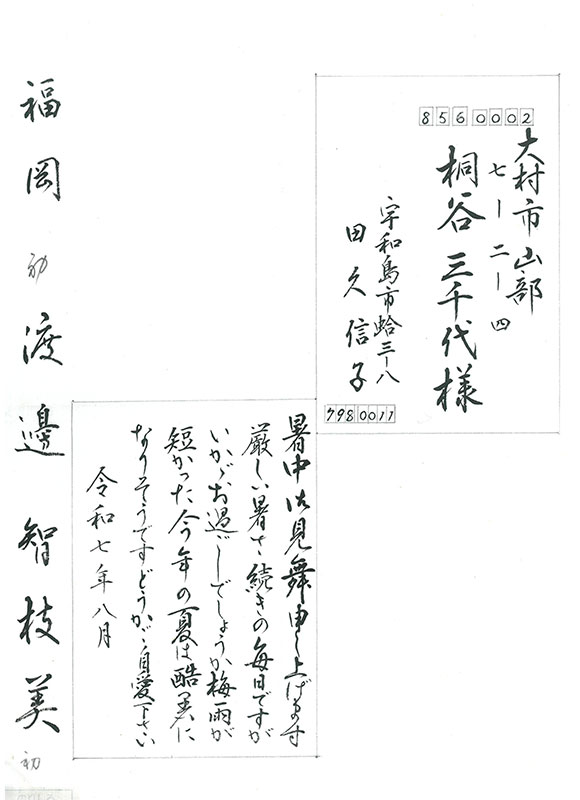 8560002
大村市山部
七ー二ー四
桐谷三千代様
宇和島市蛤三ー八
田久信子
7980011
暑中御見舞申し上げます
厳しい暑さ続きの毎日ですが
いかがお過ごしでしょうか梅雨が
短かった今年の夏は酷暑に
なりそうですどうかご自愛下さい
令和七年八月
福岡 初 渡邉智枝美 初